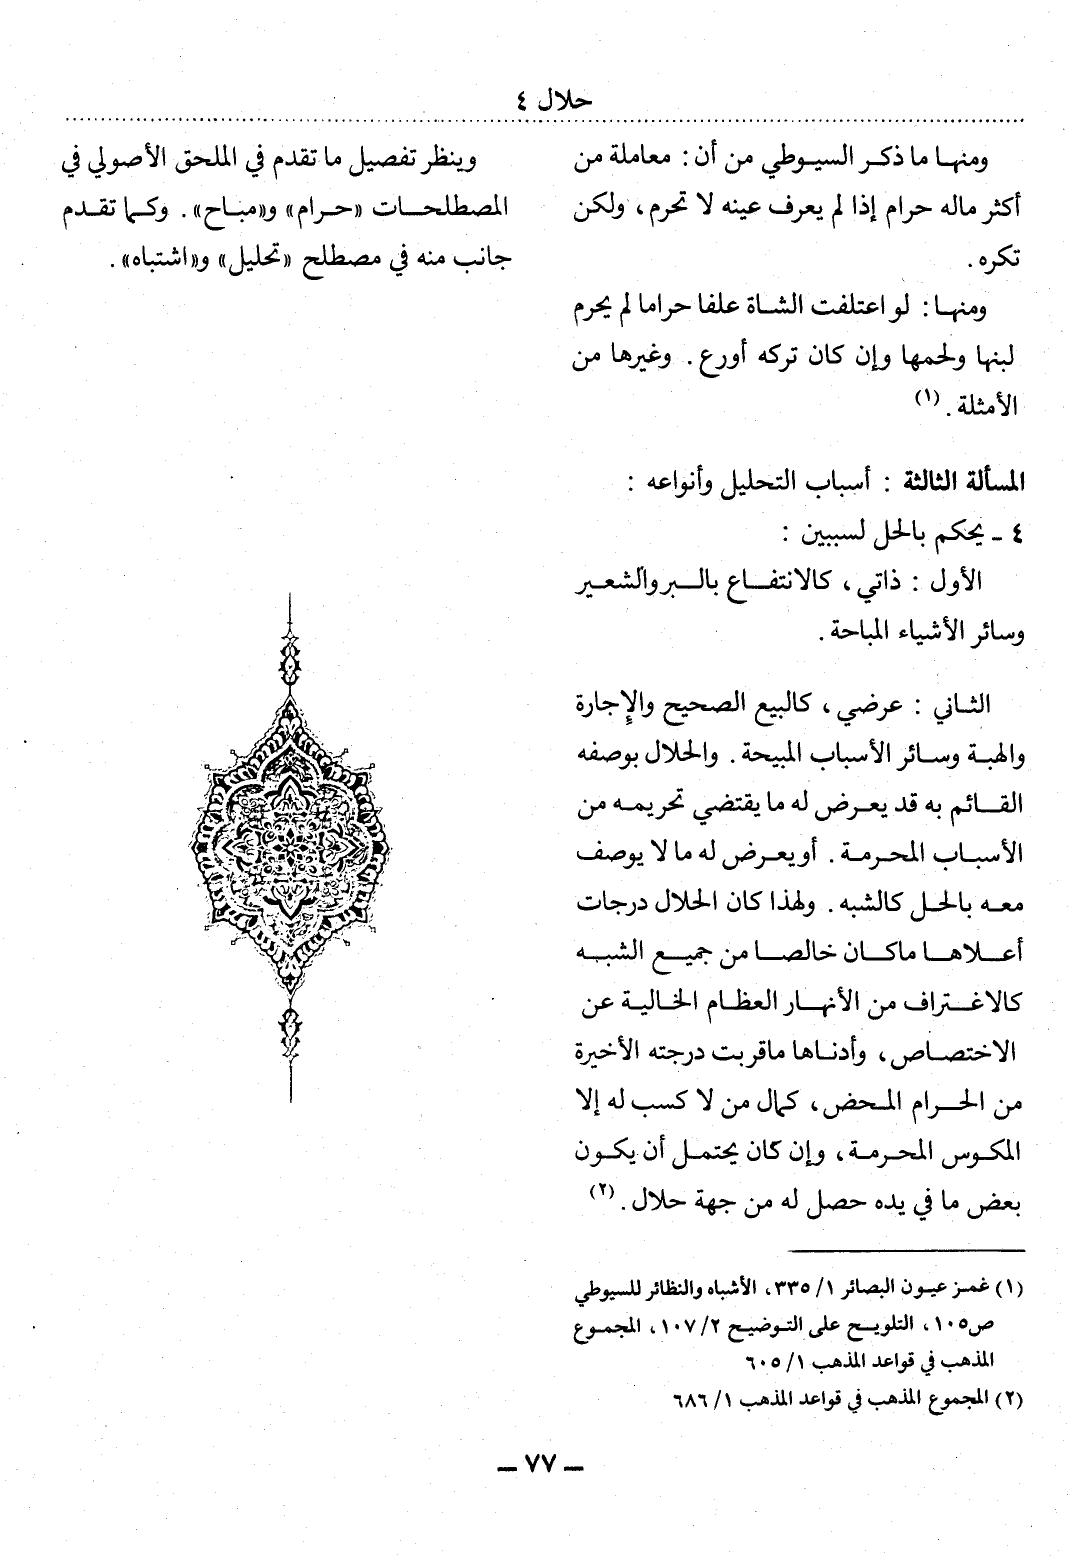 حلال ٤
ومنها ما ذكر السيوطي من أن : معاملة من
أكثر ماله حرام إذا لم يعرف عينه لا تحرم ، ولكن
تكره .
ومنها : لو اعتلفت الشاة علفا حراما لم يحرم
لبنها ولحمها وإن كان تركه أورع . وغيرها من
الأمثلة . (١)
المسألة الثالثة : أسباب التحليل وأنواعه :
٤ - يحكم بالحل لسببين :
الأول : ذاتي ، كالانتفاع بالبر والشعير
وسائر الأشياء المباحة .
الثاني : عرضي ، كالبيع الصحيح والإجارة
والهبة وسائر الأسباب المبيحة . والحلال بوصفه
القائم به قد يعرض له ما يقتضي تحريمه من
الأسباب المحرمة . أو يعرض له ما لا يوصف
معه بالحل كالشبه . ولهذا كان الحلال درجات
أعلاها ما كان خالصا من جميع الشبه
كالاغتراف من الأنهار العظام الخالية عن
الاختصاص ، وأدناها ما قربت درجته الأخيرة
من الحرام المحض ، كمال من لا كسب له إلا
المكوس المحرمة ، وإن كان يحتمل أن يكون
بعض ما في يده حصل له من جهة حلال . (٢)
(١) غمز عيون البصائر ١/ ٣٣٥، الأشباه والنظائر للسيوطي
ص١٠٥، التلويح على التوضيح ٢/ ١٠٧، المجموع
المذهب في قواعد المذهب ١/ ٦٠٥
(٢) المجموع المذهب في قواعد المذهب ١/ ٦٨٦
وينظر تفصيل ما تقدم في الملحق الأصولي في
المصطلحات «حرام» و«مباح» . وكما تقدم
جانب منه في مصطلح «تحليل» و«اشتباه» .
ـ ٧٧ ـ